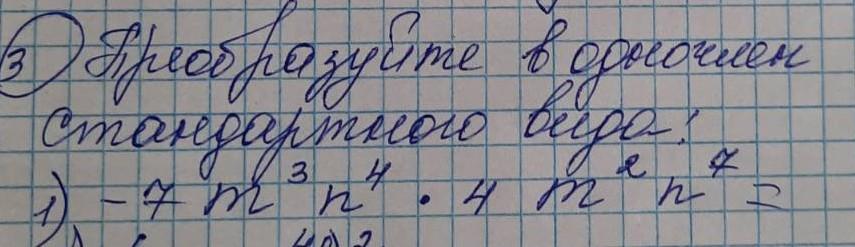 3 Преобразуйте в одночлен
стандартного вида:
1) -7 m³ n⁴ · 4 m² n⁷ =